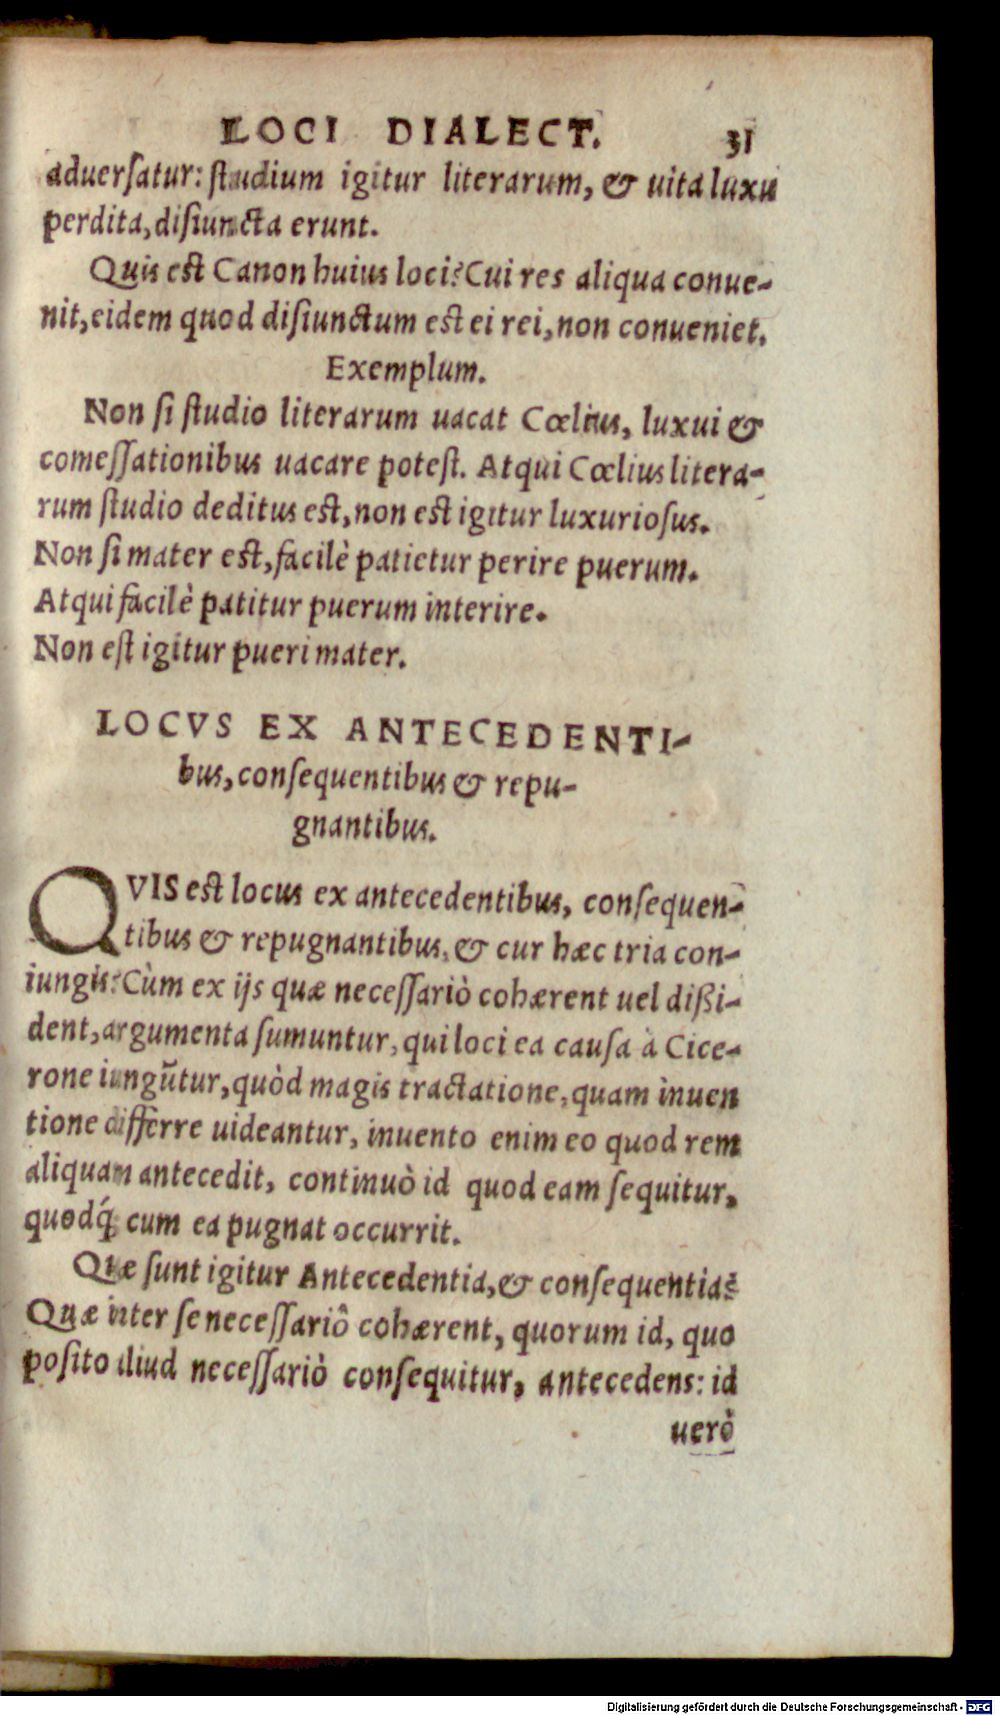 LOCI DIALECT. 31
aduerſatur: ſtudium igitur literarum, & uita luxu
perdita, diſiuncta erunt.
Quis eſt Canon huius loci? Cui res aliqua conue-
nit, eidem quod diſiunctum eſt ei rei, non conueniet.
Exemplum.
Non ſi ſtudio literarum uacat Cœlius, luxui &
comeſſationibus uacare poteſt. Atqui Cœlius litera-
rum ſtudio deditus eſt, non eſt igitur luxurioſus.
Non ſi mater eſt, facilè patietur perire puerum.
Atqui facilè patitur puerum interire.
Non eſt igitur pueri mater.
LOCVS EX ANTECEDENTI-
bus, conſequentibus & repu-
gnantibus.
QVIS eſt locus ex antecedentibus, conſequen-
tibus & repugnantibus, & cur hæc tria con-
iungis? Cùm ex ijs quæ neceſſariò cohærent uel dißi-
dent, argumenta ſumuntur, qui loci ea cauſa à Cice-
rone iungũtur, quòd magis tractatione, quam inuen
tione differre uideantur, inuento enim eo quod rem
aliquam antecedit, continuò id quod eam ſequitur,
quodq́; cum ea pugnat occurrit.
Quæ ſunt igitur Antecedentia, & conſequentia?
Quæ inter ſe neceſſariò cohærent, quorum id, quo
poſito illud neceſſariò conſequitur, antecedens: id
uerò
Digitalisierung gefördert durch die Deutsche Forschungsgemeinschaft - DFG